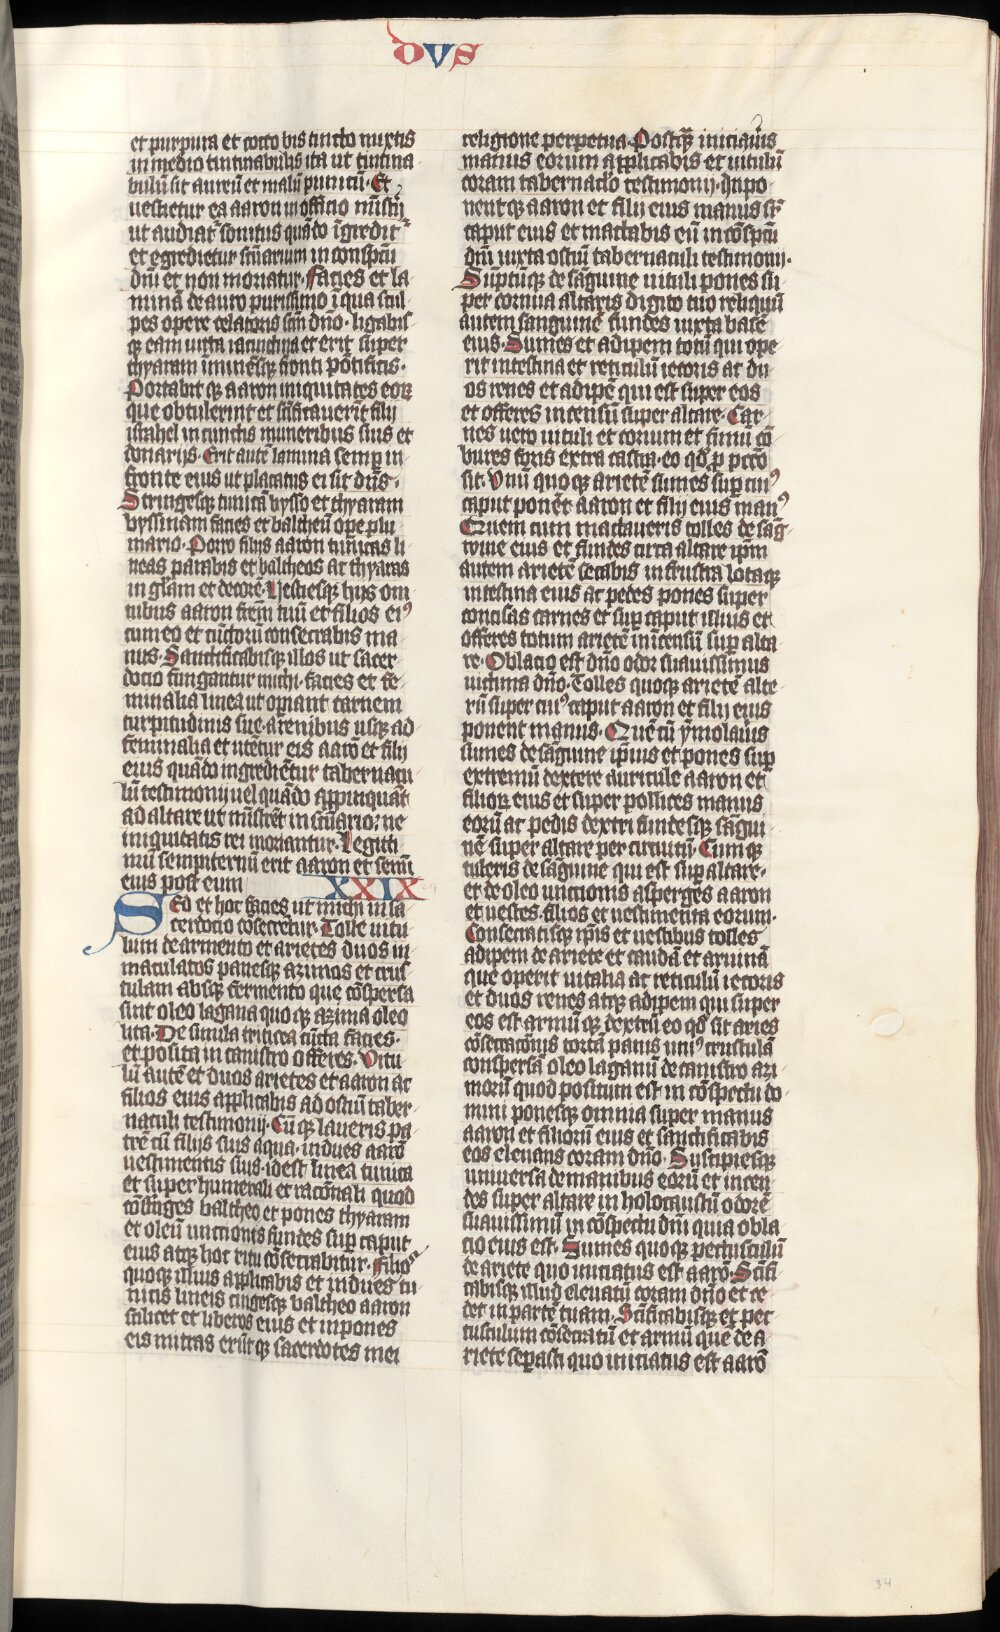 DVS
et purpura et cocco bis tincto mixtis
in medio tintinabulis ita ut tintina
bulū sit aureū et malū punicū. Et
vestietur ea aaron in officio mīstij
ut audiat᷑ sonitus quādo īgredit᷑
et egredietur scūarium in conspcū
dnī et non moriatur. Facies et la
minā de auro purissimo ī qua scul
pes opere celatoris scm̄ dño. ligabis
qꝫ eam vitta iacinctina et erit super
thyaram īminēsqꝫ fronti pōtificis.
Portabit qꝫ aaron iniquitates eoꝝ
que obtulerint et sc̄ificauerīt filij
israhel in cunctis muneribus suis et
donarijs. Erit autē lamina semp̄ in
fronte eius ut placatus ei sit dn̄s.
Stringesqꝫ tunicā bysso et thyaram
byssinam facies et baltheū ope plu
mario. Porro filijs aaron tunicas li
neas parabis et baltheos ac thyaras
in gl̄am et decorē. Vestiesqꝫ hijs om
nibus aaron frēm tuū et filios eiꝰ
cum eo et cūctorū consecrabis ma
nus. Sanctificabisqꝫ illos ut sacer
docio fungantur michi. facies et fe
minalia linea ut opiant carnem
turpitudinis sue. a renibus usqꝫ ad
feminalia et utētur eis aarō et filij
eius quādo ingredientur tabernacu
lū testimonij uel quādo app̄inquāt
ad altare ut mīstrēt in scūario. ne
iniquitatis rei moriantur. Legiti
mū sempiternū erit aaron et semī
eius post eum
XXIX
Sed et hoc facies ut michi in sa
cerdocio cōsecrētur. Tolle vitu
lum de armento et arietes duos in
maculatos panesqꝫ azimos et crus
tulam absqꝫ fermento que cōspersa
sint oleo lagana quoqꝫ azima oleo
lita. De simila triticea cūcta facies.
et posita in canistro offeres. Vitu
lū autē et duos arietes et aaron ac
filios eius applicabis ad ostiū taber
naculi testimonij. Cūqꝫ laueris pa
trē cū filijs suis aqua. indues aarō
vestimentis suis. idest linea tunica
et super humerali et racōnali quod
cōstriges baltheo et pones thyaram
et oleū unctionis fundes sup̄ caput
eius atqꝫ hoc ritu cōsecrabitur. Filios
quoqꝫ illius applicabis et indues tu
nicis lineis cingesqꝫ baltheo aaron
scilicet et liberos eius et inpones
eis mitras erūtqꝫ sacerdotes mei
religione perpetua. Postqꝫ iniciaūis
manus eorum applicabis et vitulū
coram tabernaclo testimonij. Inpo
nentqꝫ aaron et filij eius manus sr̄
caput eius et mactabis eū in cōspcū
dnī iuxta ostiū tabernaculi testimonij.
Sūptūqꝫ de sāguine vituli pones su
per cornua altaris digito tuo reliquū
autem sanguinē fundes iuxta basē
eius. Sumes et adipem totū qui ope
rit intestina et reticulū iecoris ac du
os renes et adipē qui est super eos
et offeres incensū super altare. Car
nes vero vituli et corium et fimū cō
bures foris extra castra. eo qd p̄ pccō
sit. Vnū quoqꝫ arietē sumes sup̄ cuiꝰ
caput ponēt aaron et filij eius manꝰ
Quem cum mactaueris tolles de sāg
wine eius et fundes circa altare ipm̄
autem arietē secabis in frusta lotaqꝫ
intestina eius ac pedes pones super
concisas carnes et sup̄ caput illius et
offeres totum arietē in incensū sup̄ alta
re. Oblacio est dn̄o odor suauissimus
victima dn̄o. Tolles quoqꝫ arietē alte
rū super cuiꝰ caput aaron et filij eius
ponent manus. Quē cū ymolaūis
sumes de sāguine ip̄ius et pones sup̄
extremū dextere auricule aaron et
filioꝝ eius et super pollices manus
eorū ac pedis dextri fundesqꝫ sāgui
nē super altare per circuitū. Cumqꝫ
tuleris de sāguine qui est sup̄ altare.
et de oleo unctionis asperges aaron
et vestes. filios et vestimenta eorum.
Consecratisqꝫ ip̄is et vestibus tolles
adipem de ariete et caudā et aruinā
que operit vitalia ac reticulū iecoris
et duos renes atqꝫ adipem qui super
eos est armūqꝫ dextrū eo qd̄ sit aries
cōsecracōnis torta panis uniꝰ crustulā
conspersā oleo laganū de canistro azi
morū quod positum est in cōspectu do
mini ponesqꝫ omnia super manus
aaron et filiorū eius et sanctificabis
eos eleuans coram dn̄o. Suscipiesqꝫ
uniuersa de manibus eorū et incen
des super altare in holocaustū odorē
suauissimū in cōspectu dnī quia obla
cio eius est. Sumes quoqꝫ pectusculū
de ariete quo iniciatus est aarō. Scīfi
cabisqꝫ illud eleuatū coram dn̄o et ce
det in partē tuam. Scīficabisqꝫ et pec
tusculum cōsecratū et armū que de a
riete sep̄asti quo iniciatus est aarō
34